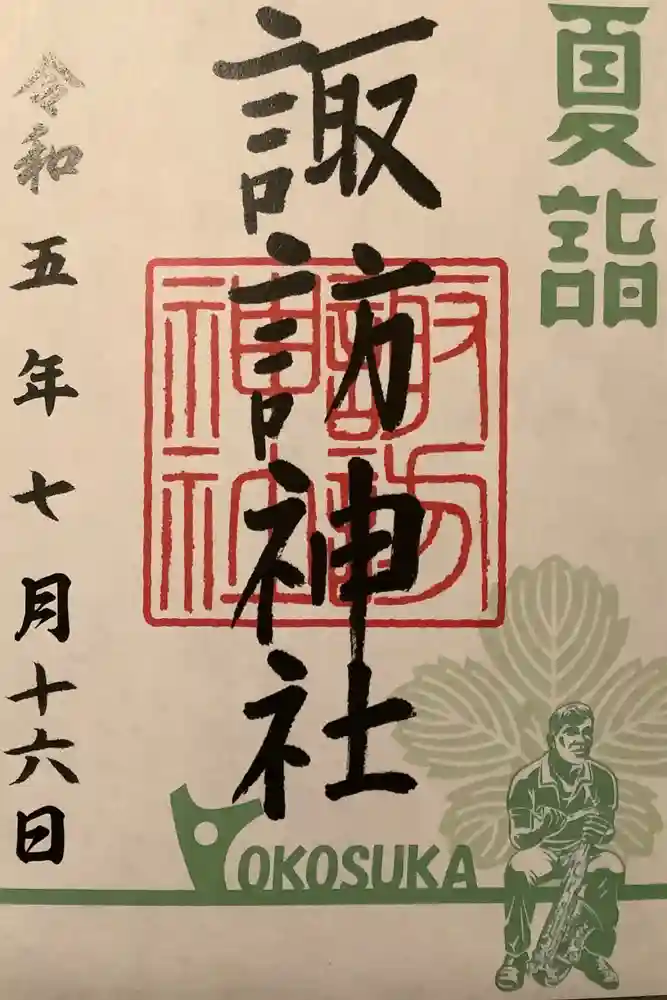 夏詣
諏訪神社
諏訪神社
令和五年七月十六日
YOKOSUKA